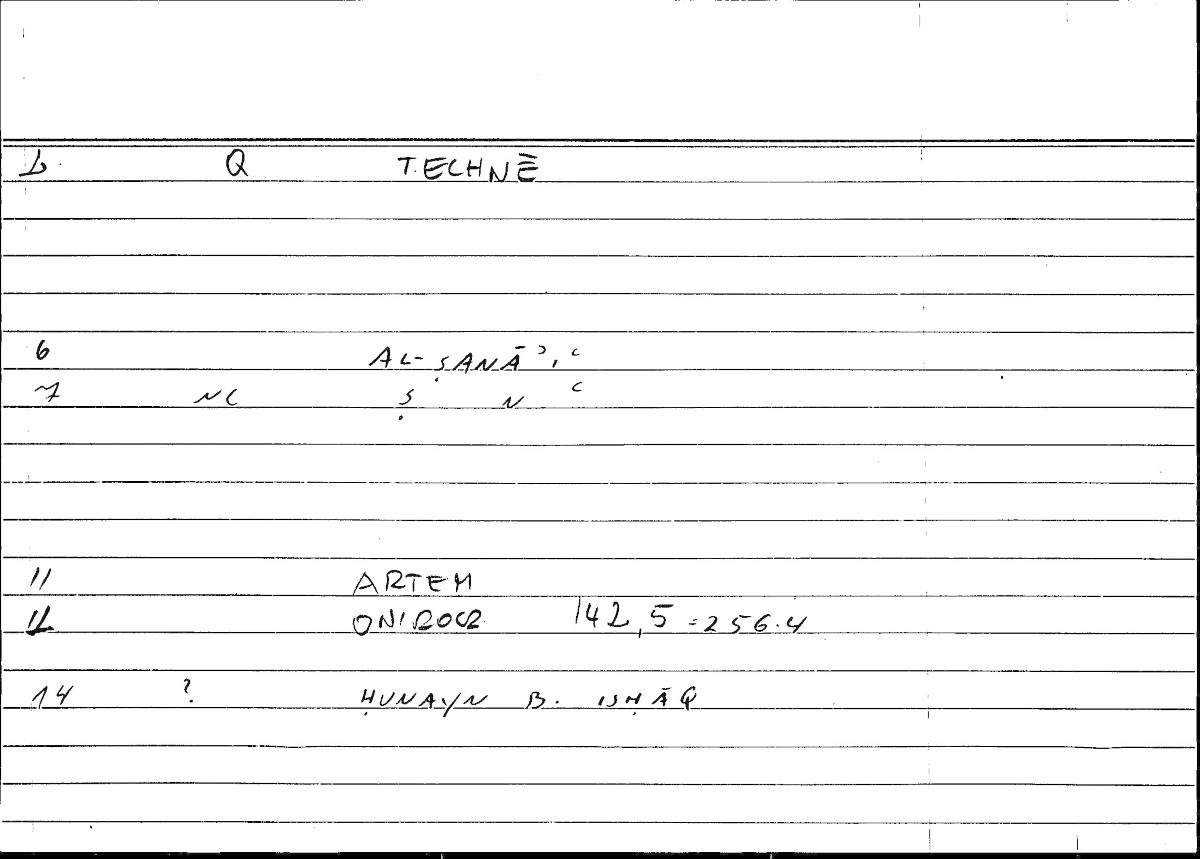 1. Q TECHNĒ
6 AL-ṢANĀʾIʿ
7 NC Ṣ N ʿ
11 ARTEM
12 ONIROCR 142,5 = 256.4
14 ? ḤUNAYN B. ISḤĀQ